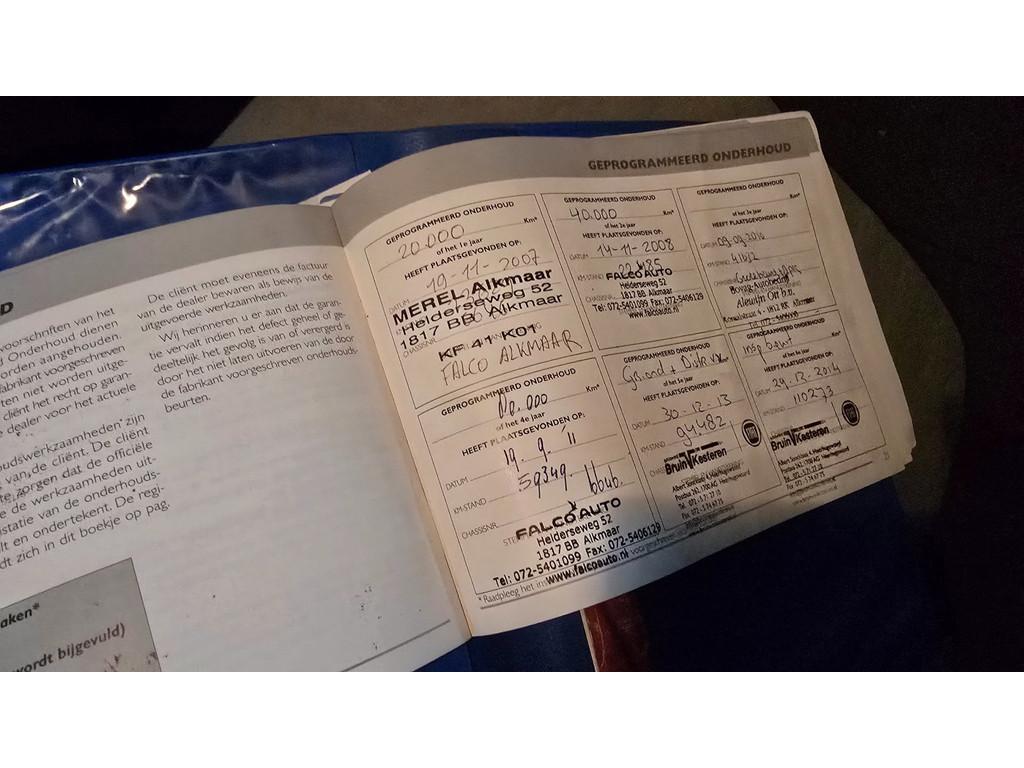 D
voorschriften van het
Onderhoud dienen
orden aangehouden.
fabrikant voorgeschreven
ten niet worden uitge-
cliënt het recht op garan-
e dealer voor het actuele
oudswerkzaamheden zijn
van de cliënt. De cliënt
te zorgen dat de officiële
e de werkzaamheden uit-
statie van de onderhouds-
lt en ondertekent. De regi-
dt zich in dit boekje op pag.
De cliënt moet eveneens de factuur
van de dealer bewaren als bewijs van de
uitgevoerde werkzaamheden.
Wij herinneren u er aan dat de garan-
tie vervalt indien het defect geheel of ge-
deeltelijk het gevolg is van of verergerd is
door het niet laten uitvoeren van de door
de fabrikant voorgeschreven onderhouds-
beurten.
aken*
wordt bijgevuld)
GEPROGRAMMEERD ONDERHOUD
GEPROGRAMMEERD ONDERHOUD
20.000 Km*
of het 1e jaar
HEEFT PLAATSGEVONDEN OP:
DATUM 19-11-2007
MEREL Alkmaar
Helderseweg 52
1817 BB Alkmaar
CHASSISNR.
KF 41 K01
FALCO ALKMAAR
GEPROGRAMMEERD ONDERHOUD
40.000 Km*
of het 2e jaar
HEEFT PLAATSGEVONDEN OP:
DATUM 14-11-2008
KM-STAND
FALCO AUTO
Helderseweg 52
1817 BB Alkmaar
Tel: 072-5401099 Fax: 072-5406129
www.falcoauto.nl
GEPROGRAMMEERD ONDERHOUD
Km*
of het 3e jaar
HEEFT PLAATSGEVONDEN OP:
DATUM
KM-STAND
GEPROGRAMMEERD ONDERHOUD
Km*
of het 4e jaar
HEEFT PLAATSGEVONDEN OP:
DATUM 19-9-'11
KM-STAND 59349
CHASSISNR.
FALCO AUTO
Helderseweg 52
1817 BB Alkmaar
Tel: 072-5401099 Fax: 072-5406129
www.falcoauto.nl
* Raadpleeg het
GEPROGRAMMEERD ONDERHOUD
Km*
of het 5e jaar
HEEFT PLAATSGEVONDEN OP:
DATUM 30-12-13
KM-STAND 94482
Bruin V Kesteren
GEPROGRAMMEERD ONDERHOUD
Km*
HEEFT PLAATSGEVONDEN OP:
DATUM 29-12-2014
KM-STAND 110273
Bruin V Kesteren